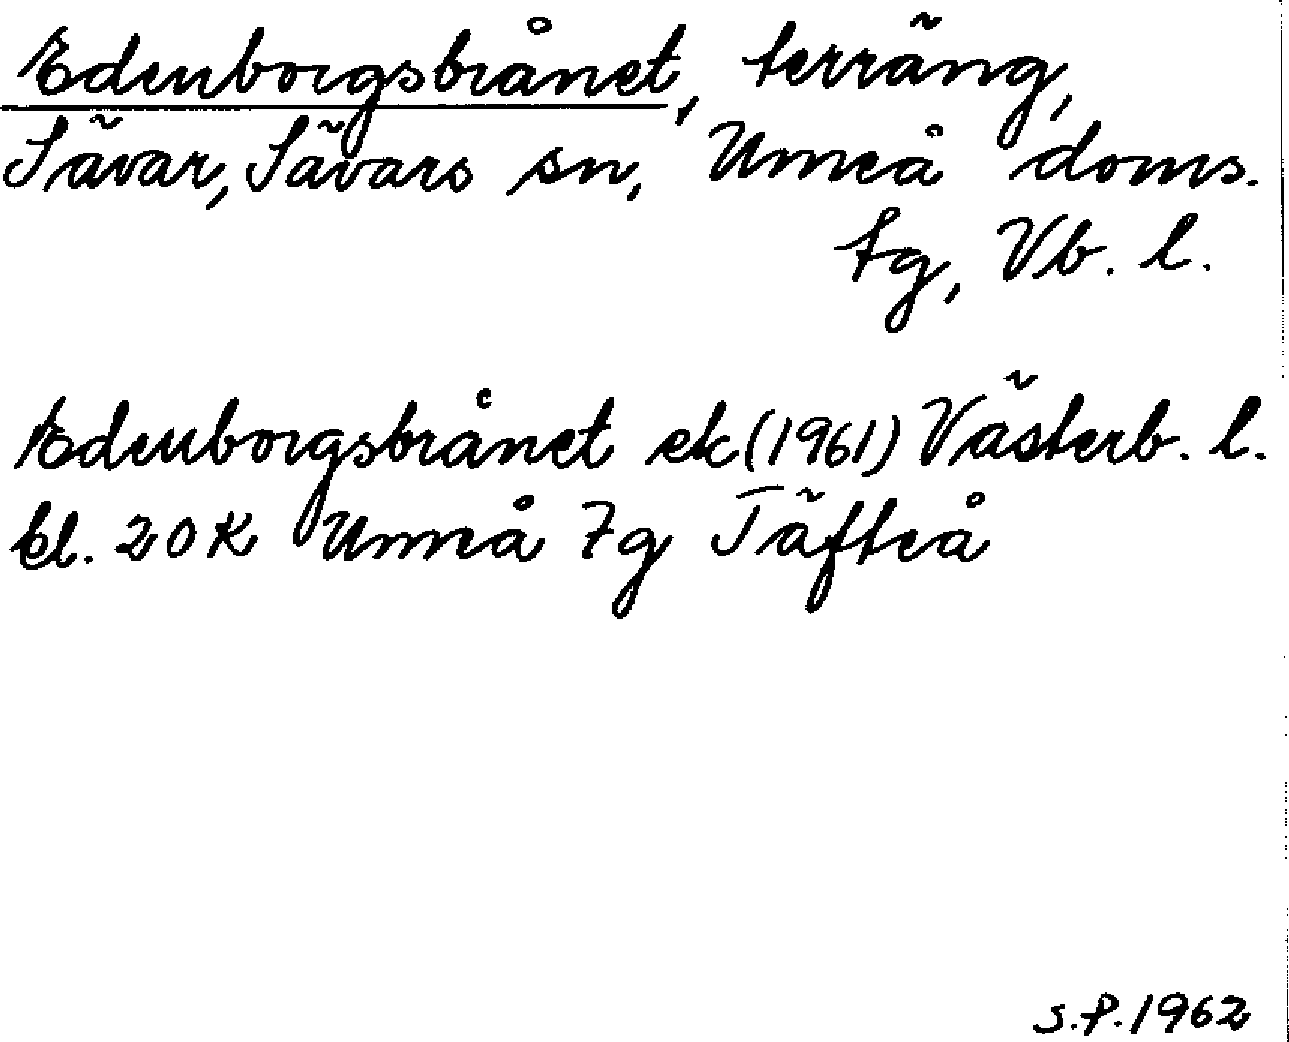 Edenborgsbrånet, terräng,
Sävar, Sävars sn, Umeå doms.
tg, Vb. l.
Edenborgsbrånet ek (1961) Västerb. l.
bl. 20K Umeå 7g Täfteå
S.P. 1962